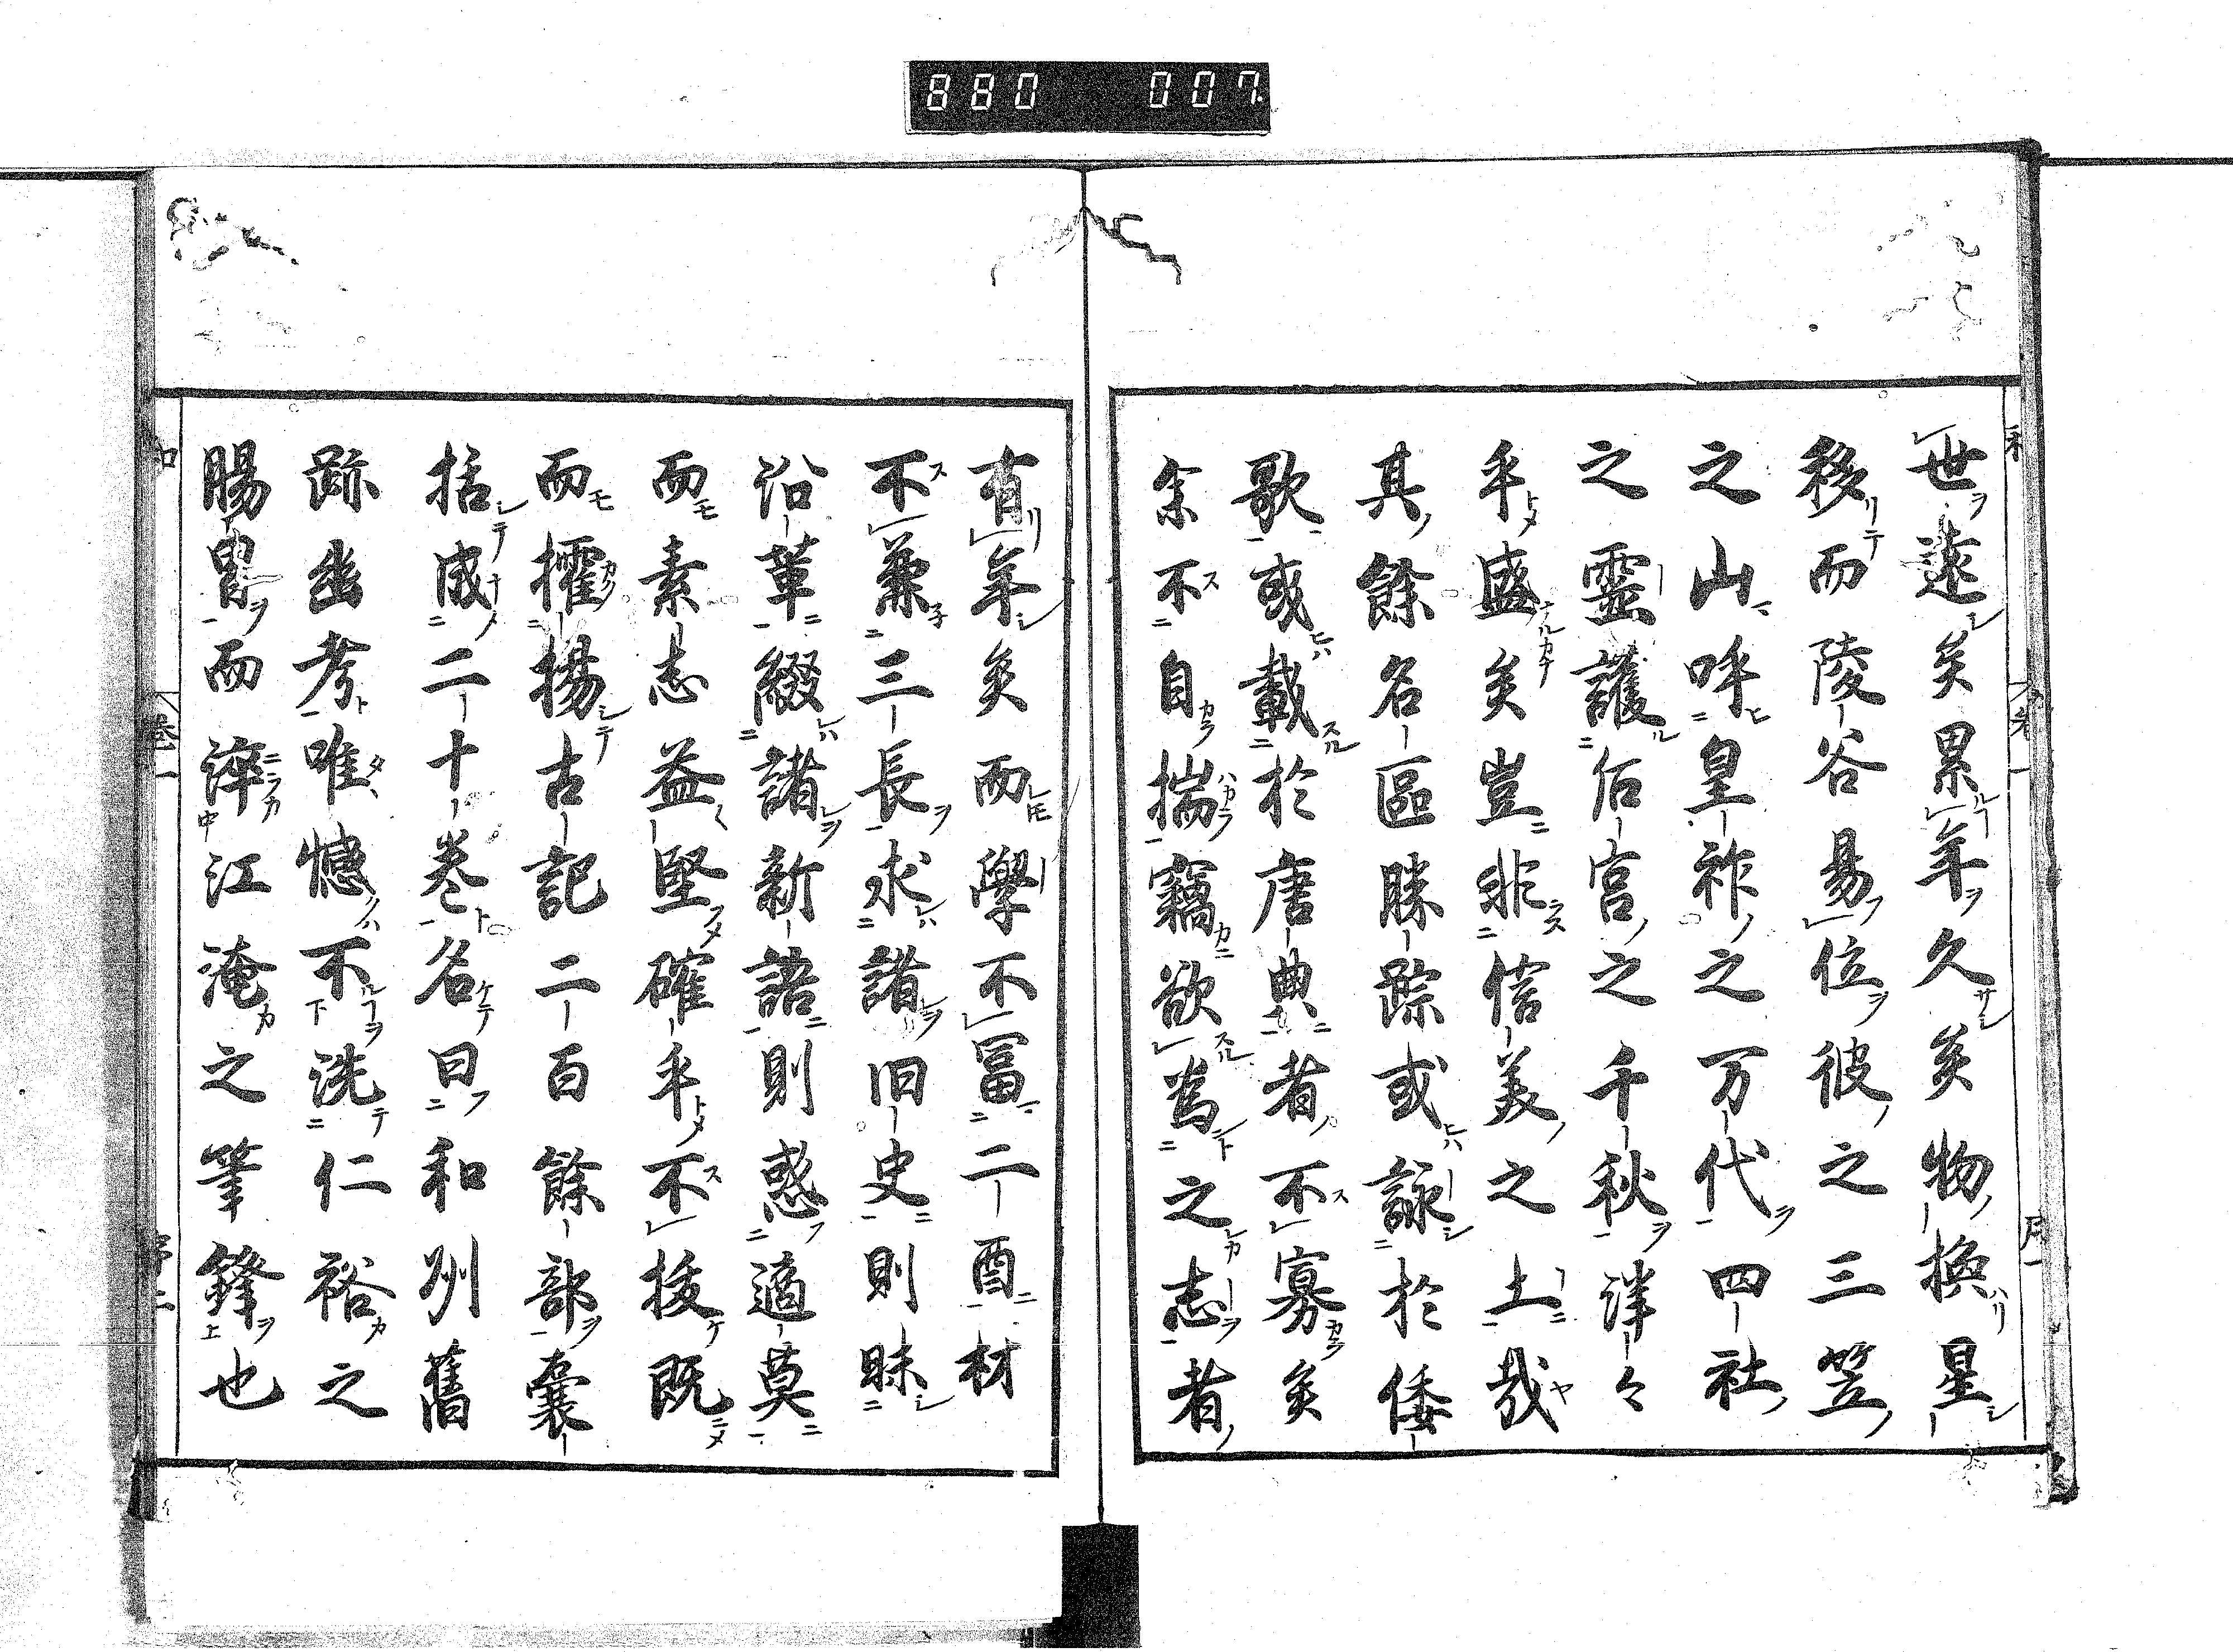 880 007
世遠矣累年久矣物換星
移而陵谷易位彼之三笠
之山呼皇祚之万代四社
之靈護后宮之千秋洋々
乎盛矣豈非信美之土哉
其餘名區勝蹤或詠於倭
歌或載於唐典者不寡矣
余不自揣竊欲為之志者
有年矣而學不冨二酉材
不兼三長求諸旧史則昧
沿革綴諸新語則惑適莫
而素志益堅確乎不拔既
而搉揚古記二百餘部囊
括成二十巻名曰和州舊
跡幽考唯憾不洗仁裕之
腸胃而淬江淹之筆鋒也